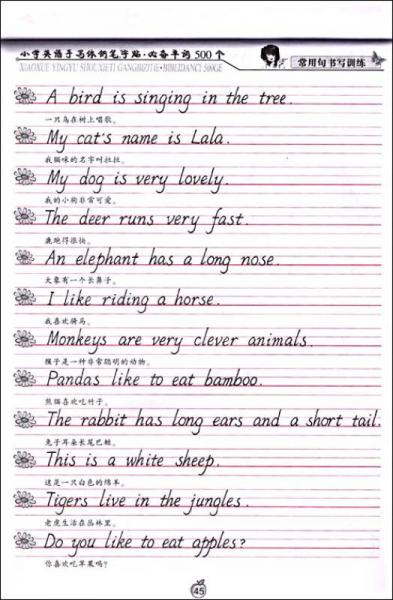 小学英语手写体钢笔字贴·必备单词 500 个
XIAOXUE YINGYU SHOUXIETI GANGBIZITIE·BIBEIDANCI 500GE
常用句书写训练
A bird is singing in the tree.
一只鸟在树上唱歌。
My cat's name is Lala.
我猫咪的名字叫拉拉。
My dog is very lovely.
我的小狗非常可爱。
The deer runs very fast.
鹿跑得很快。
An elephant has a long nose.
大象有一个长鼻子。
I like riding a horse.
我喜欢骑马。
Monkeys are very clever animals.
猴子是一种非常聪明的动物。
Pandas like to eat bamboo.
熊猫喜欢吃竹子。
The rabbit has long ears and a short tail.
兔子耳朵长尾巴短。
This is a white sheep.
这是一只白色的绵羊。
Tigers live in the jungles.
老虎生活在丛林里。
Do you like to eat apples?
你喜欢吃苹果吗?
45